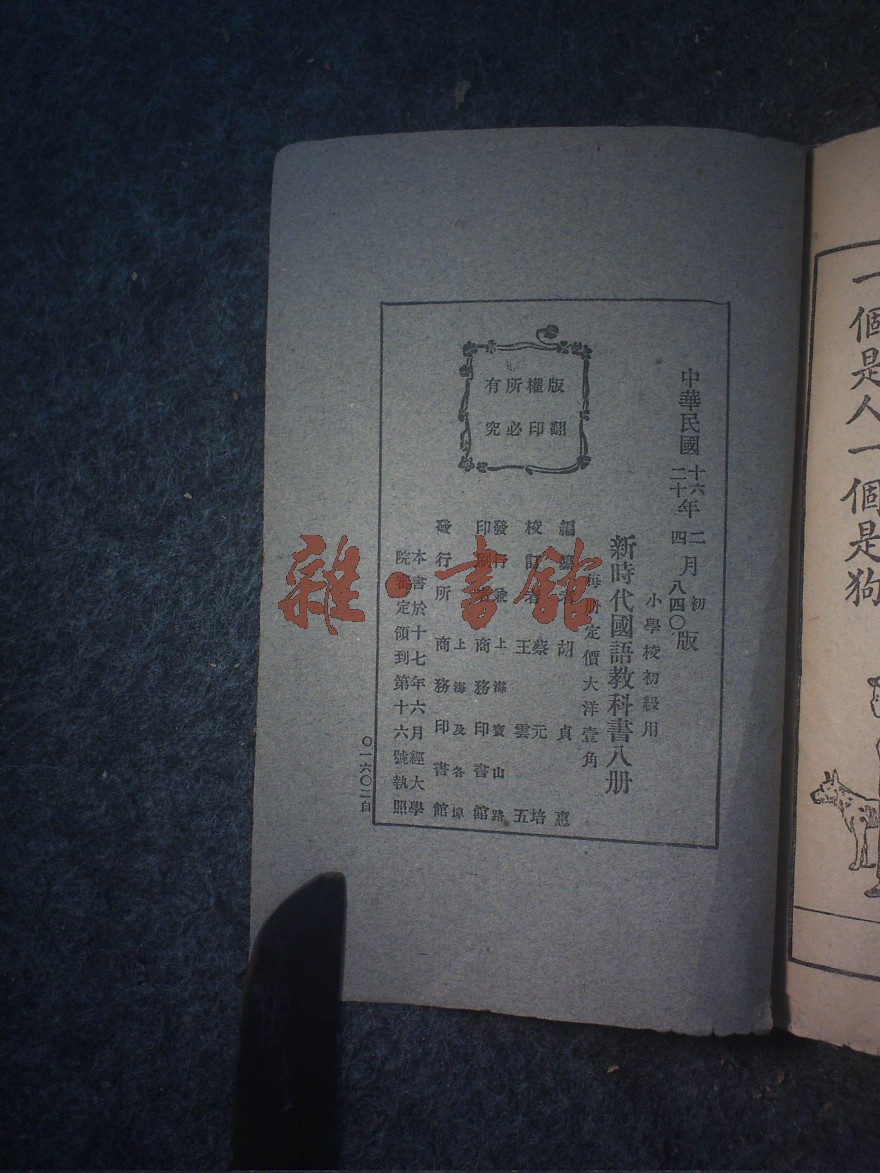 中華民國十六年二月初版
二十年四月八四〇版
小學校初級用
新時代國語教科書八册
每册定價大洋壹角
編纂者 胡貞惠
校訂者 蔡元培
王雲五
發行兼印刷者 上海寶山路
商務印書館
發行所 上海及各埠
商務印書館
本書於十七年六月經大學
院審定領到第十六號執照
〇一六〇二自
版權所有
翻印必究
雜·書館
一個是人一個是狗